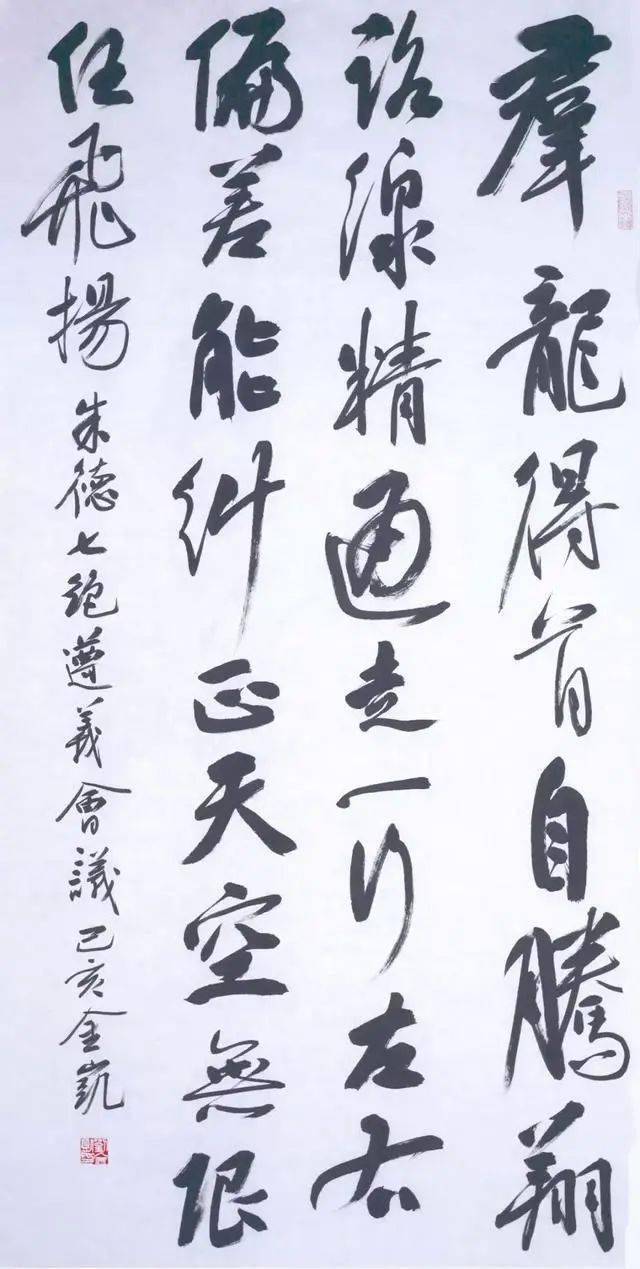 羣龍得首自騰翔
路線精通走一行左右
偏差能糾正天空無限
任飛揚 朱德七絕遵義會議 己亥金凱